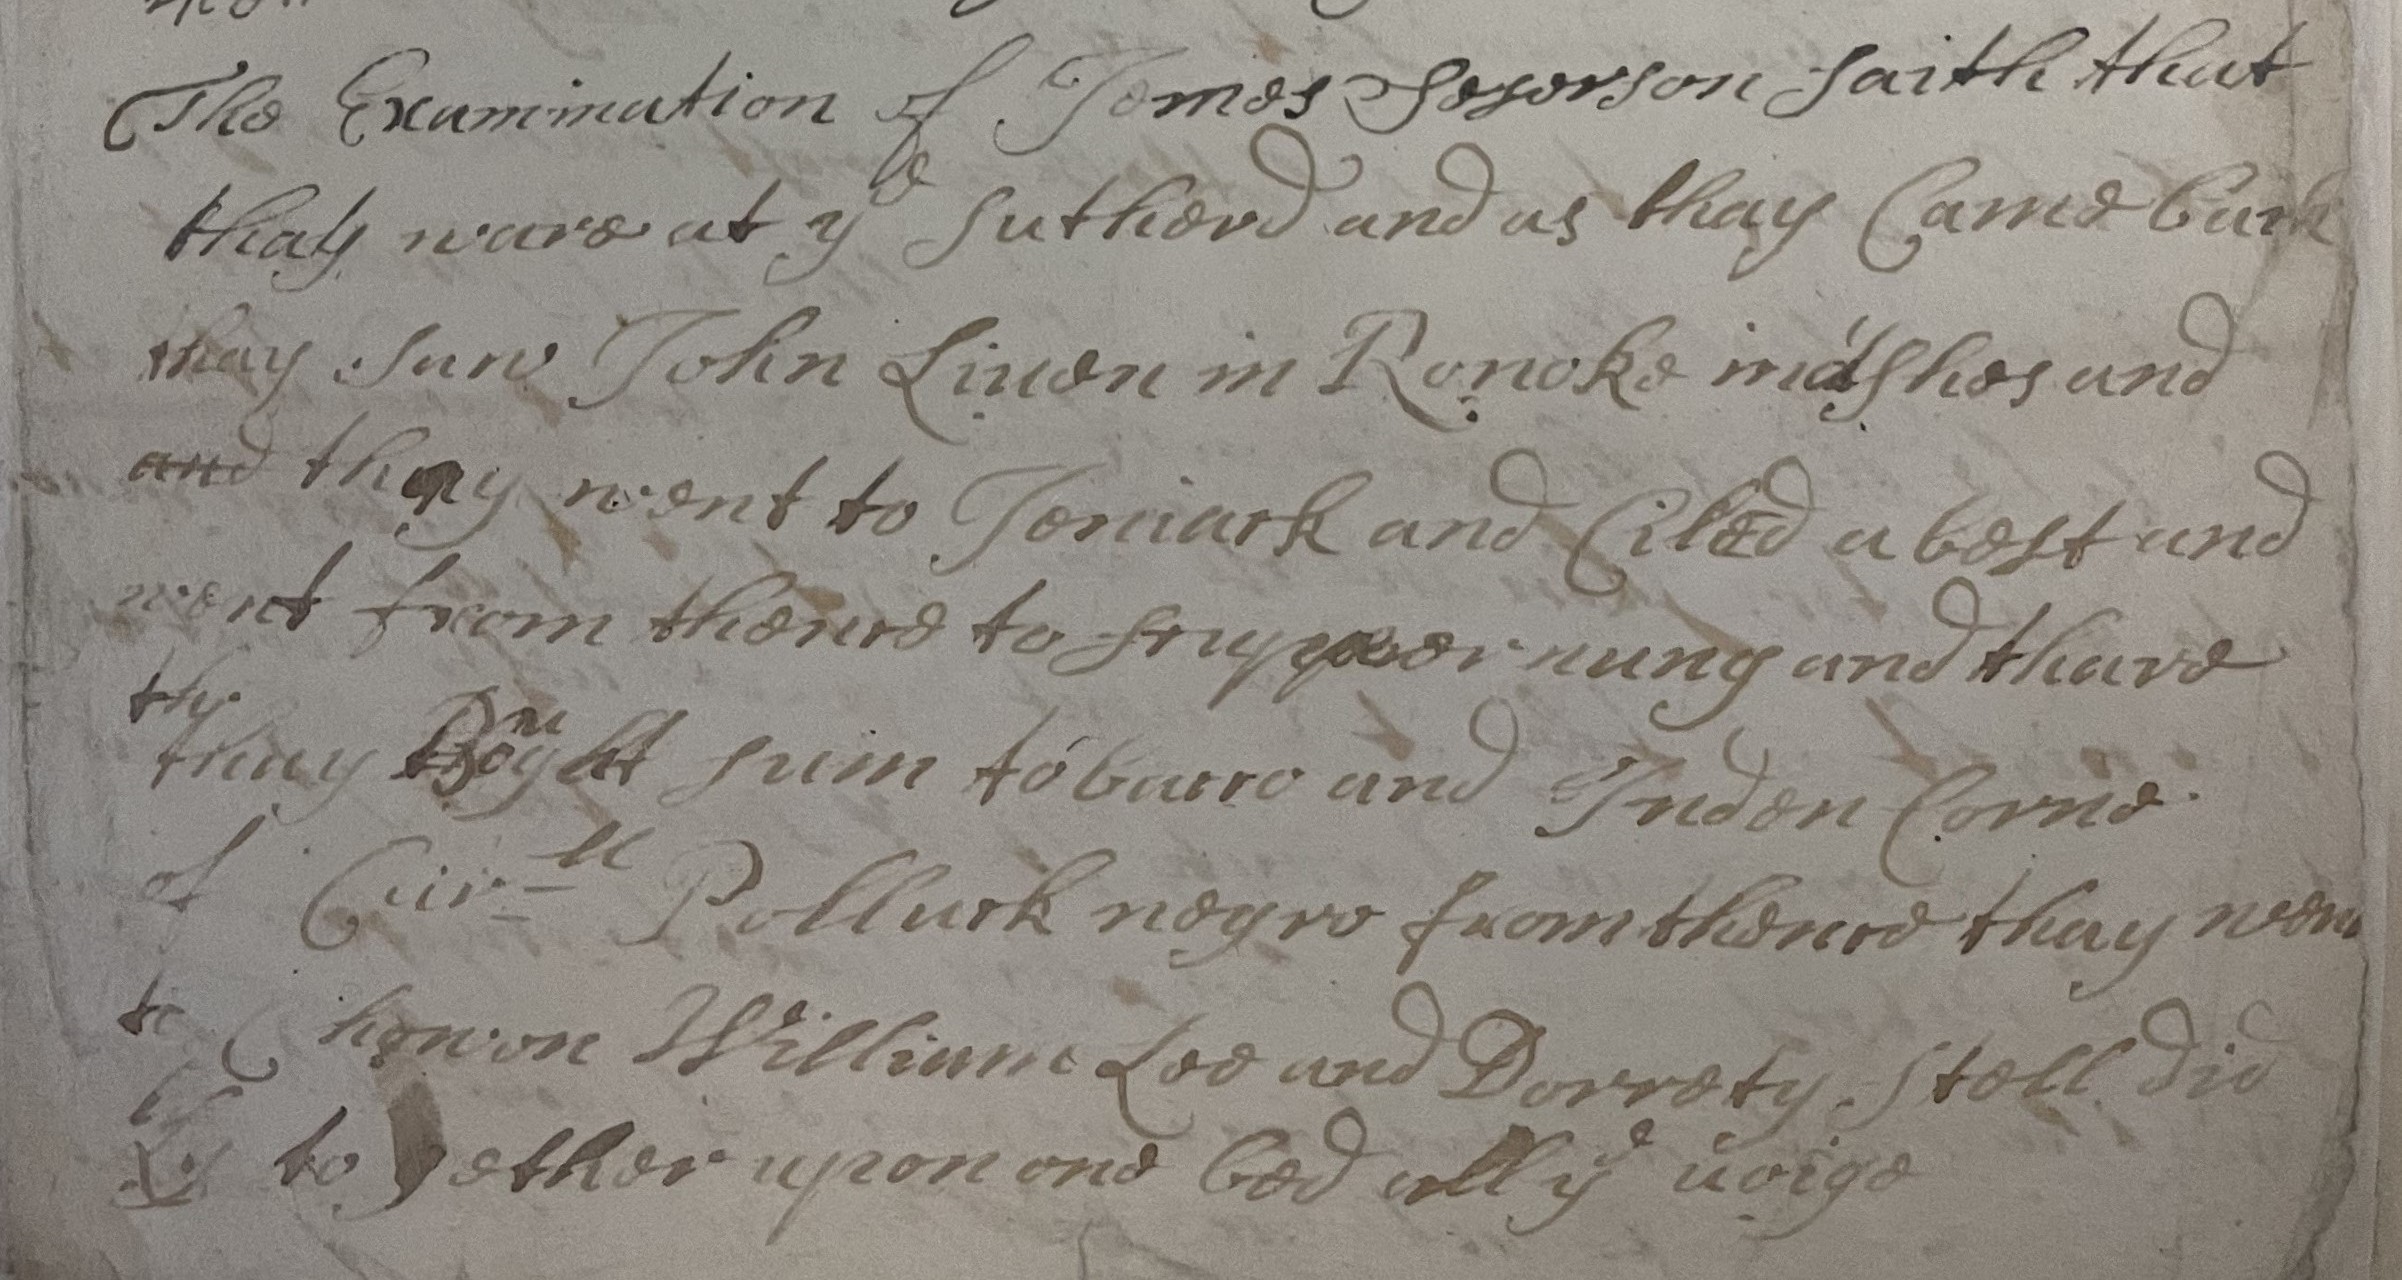 The Examination of Jemes Seserson saith that
thay ware at ye sutherd and as thay Came back
thay saw John Linen in Ronoke mashes and
and thay went to Jemiack and Ciled a best and
went from thence to scuppernung and thare
thay Bought sum tobacco and Inden Corne
of Cur=ll Polluck negro from thence thay wen
to Chowon William Lee and Dorrety Stell did
ly to gether upon one bed all ye uoige